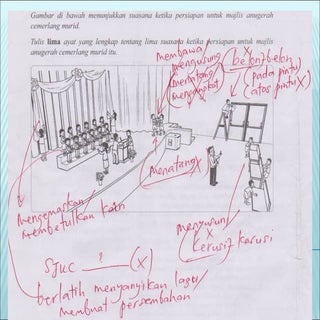 Gambar di bawah menunjukkan suasana ketika persiapan untuk majlis anugerah
cemerlang murid.
Tulis lima ayat yang lengkap tentang lima suasana ketika persiapan untuk majlis
anugerah cemerlang murid itu.
membawa
mengusung
menatang
mengangkat
X
belon-belon
(pada pintu)
(atas pintu X)
menatang X
mengemaskan
membetulkan kain
menyusun
X
kerusi2 karusi
SJUC ? (X)
berlatih menyanyikan lagu
membuat persembahan